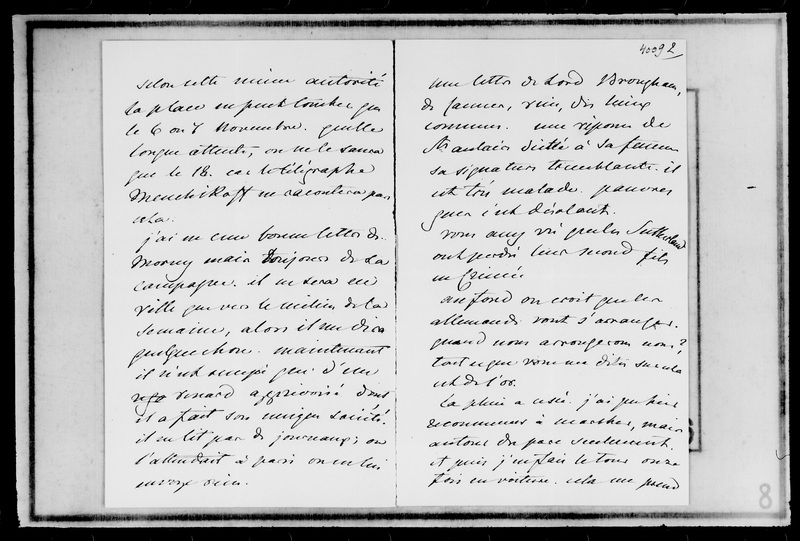 selon cette même autorité
la place ne peut tomber que
le 6 ou 7 Novembre. quelle
longue attente, on ne le saura
que le 18. car le télégraphe
Menchikoff ne racontera pas
cela.
j'ai une bonne lettre de
Morny mais toujours de la
campagne. il ne sera en
ville que vers le milieu de la
semaine, alors il me dira
quelque chose. maintenant
il n'est occupé que d'un
renard apprivoisé dont
il a fait son unique société.
il ne lit pas de journaux; on
l'attendait à paris on ne lui
envoye rien.
4009 2
une lettre de Lord Brougham,
de Cannes, rien, des lieux
communs. une réponse de
St Aulaire dictée à sa femme
sa signature tremblante. il
est très malade. pauvres
gens c'est désolant.
vous avez vu que les Sutherland
ont perdu leur second fils
en Crimée
au fond on croit que les
allemands vont s'arranger.
quand nous arrangerons nous?
tout ce que vous me dites sur cela
est de l'or.
la pluie a cessé. j'ai pu hier
recommencer à marcher, mais
autour du parc seulement.
et puis j'en fais le tour onze
fois en voiture. cela me prend
8